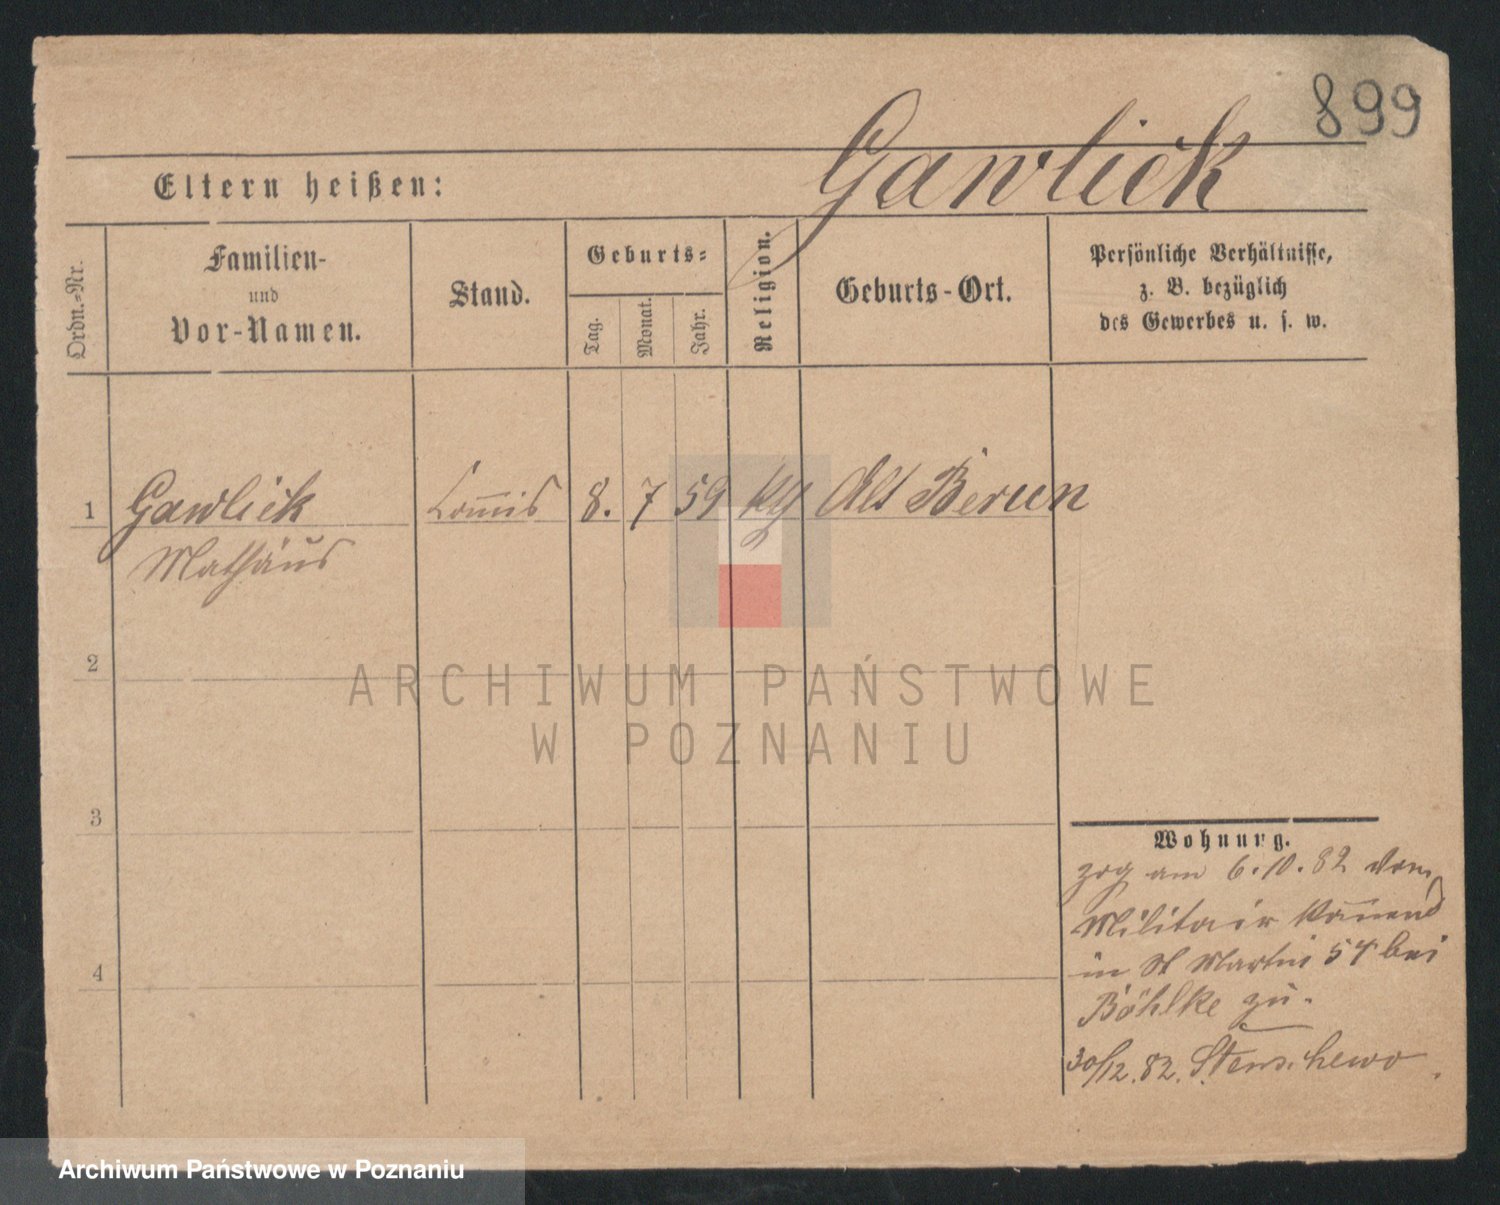 899
Gawlick
Eltern heißen:
Ordn.=Nr.
Familien-
und
Vor-Namen.
Stand.
Geburts=
Tag.
Monat.
Jahr.
Religion.
Geburts-Ort.
Persönliche Verhältnisse,
z. B. bezüglich
des Gewerbes u. s. w.
1 Gawlick Com̅is 8. 7 59 Alt Berun
Mathäus
2
ARCHIWUM PAŃSTWOWE
W POZNANIU
3
Wohnung.
zog am 6.10.82 vom
Militair
in St Martin 54 bei
Böhlke zu.
4
30/12.82.
Archiwum Państwowe w Poznaniu